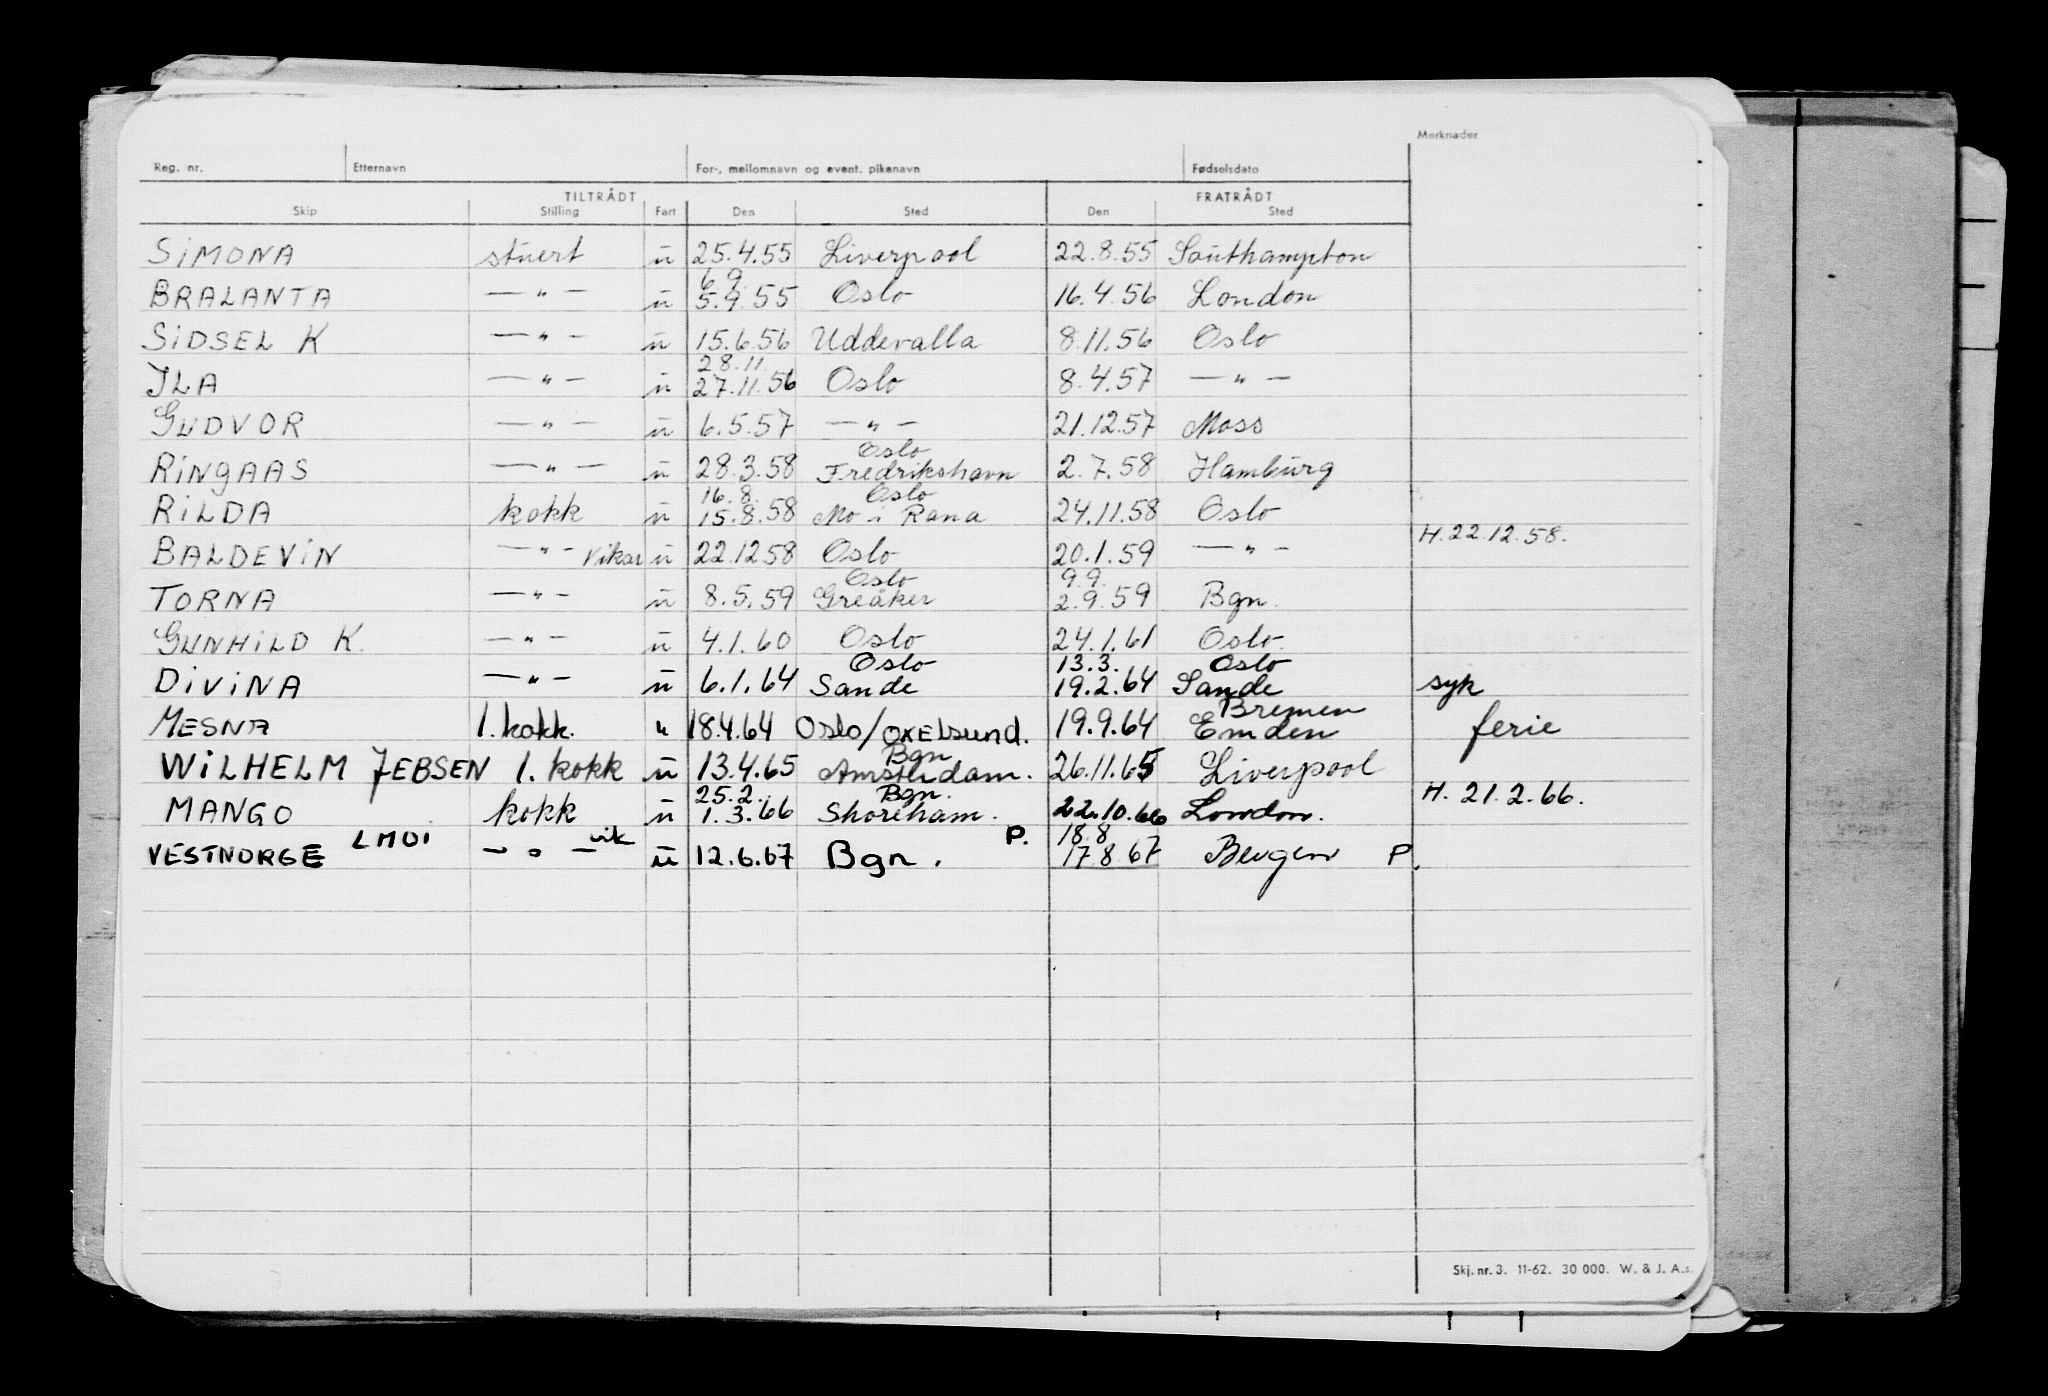 Merknader
Reg. nr. Etternavn For-, mellomnavn og event. pikenavn Fødselsdato
TILTRÅDT FRATRÅDT
Skip Stilling Fart Den Sted Den Sted
SIMONA stuert u 25.4.55 Liverpool 22.8.55 Southampton
6.9.
BRALANTA —"— u 5.9.55 Oslo 16.4.56 London
SIDSEL K —"— u 15.6.56 Uddevalla 8.11.56 Oslo
28.11.
ILA —"— u 27.11.56 Oslo 8.4.57 —"—
GUDVOR —"— u 6.5.57 —"— 21.12.57 Moss
Oslo
RINGAAS —"— u 28.3.58 Fredrikshavn 2.7.58 Hamburg
16.8. Oslo
RILDA kokk u 15.8.58 Mo i Rana 24.11.58 Oslo
H. 22.12.58.
BALDEVIN —"— vikar u 22.12.58 Oslo 20.1.59 —"—
Oslo 9.9.
TORNA —"— u 8.5.59 Greåker 2.9.59 Bgn.
GUNHILD K. —"— u 4.1.60 Oslo 24.1.61 Oslo.
Oslo 13.3. Oslo
DIVINA —"— u 6.1.64 Sande 19.2.64 Sande syk
Bremen
MESNA 1. kokk. " 18.4.64 Oslo/OXELSUND. 19.9.64 Emden ferie
Bgn
WILHELM JEBSEN 1. kokk u 13.4.65 Amsterdam. 26.11.65 Liverpool
25.2. Bgn. H. 21.2.66.
MANGO kokk u 1.3.66 Shoreham. 22.10.66 London.
LMOI vik P. 18.8
VESTNORGE —"— u 12.6.67 Bgn. 17.8.67 Bergen P.
Skj. nr. 3. 11-62. 30 000. W. & J. A.s.